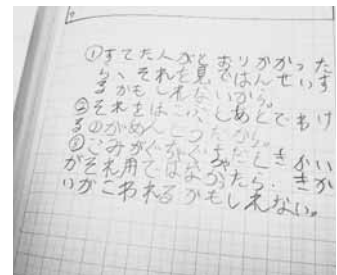 ①すてた人がとおりかかった
ら、それを見てはんせいす
るかもしれないから。
②それをはこい、しあとでもけ
るのがめんどうだから。
③ごみがぐちゃぐちゃだときかい
がそれ用ではなかったら、きか
いがこわれるかもしれない。